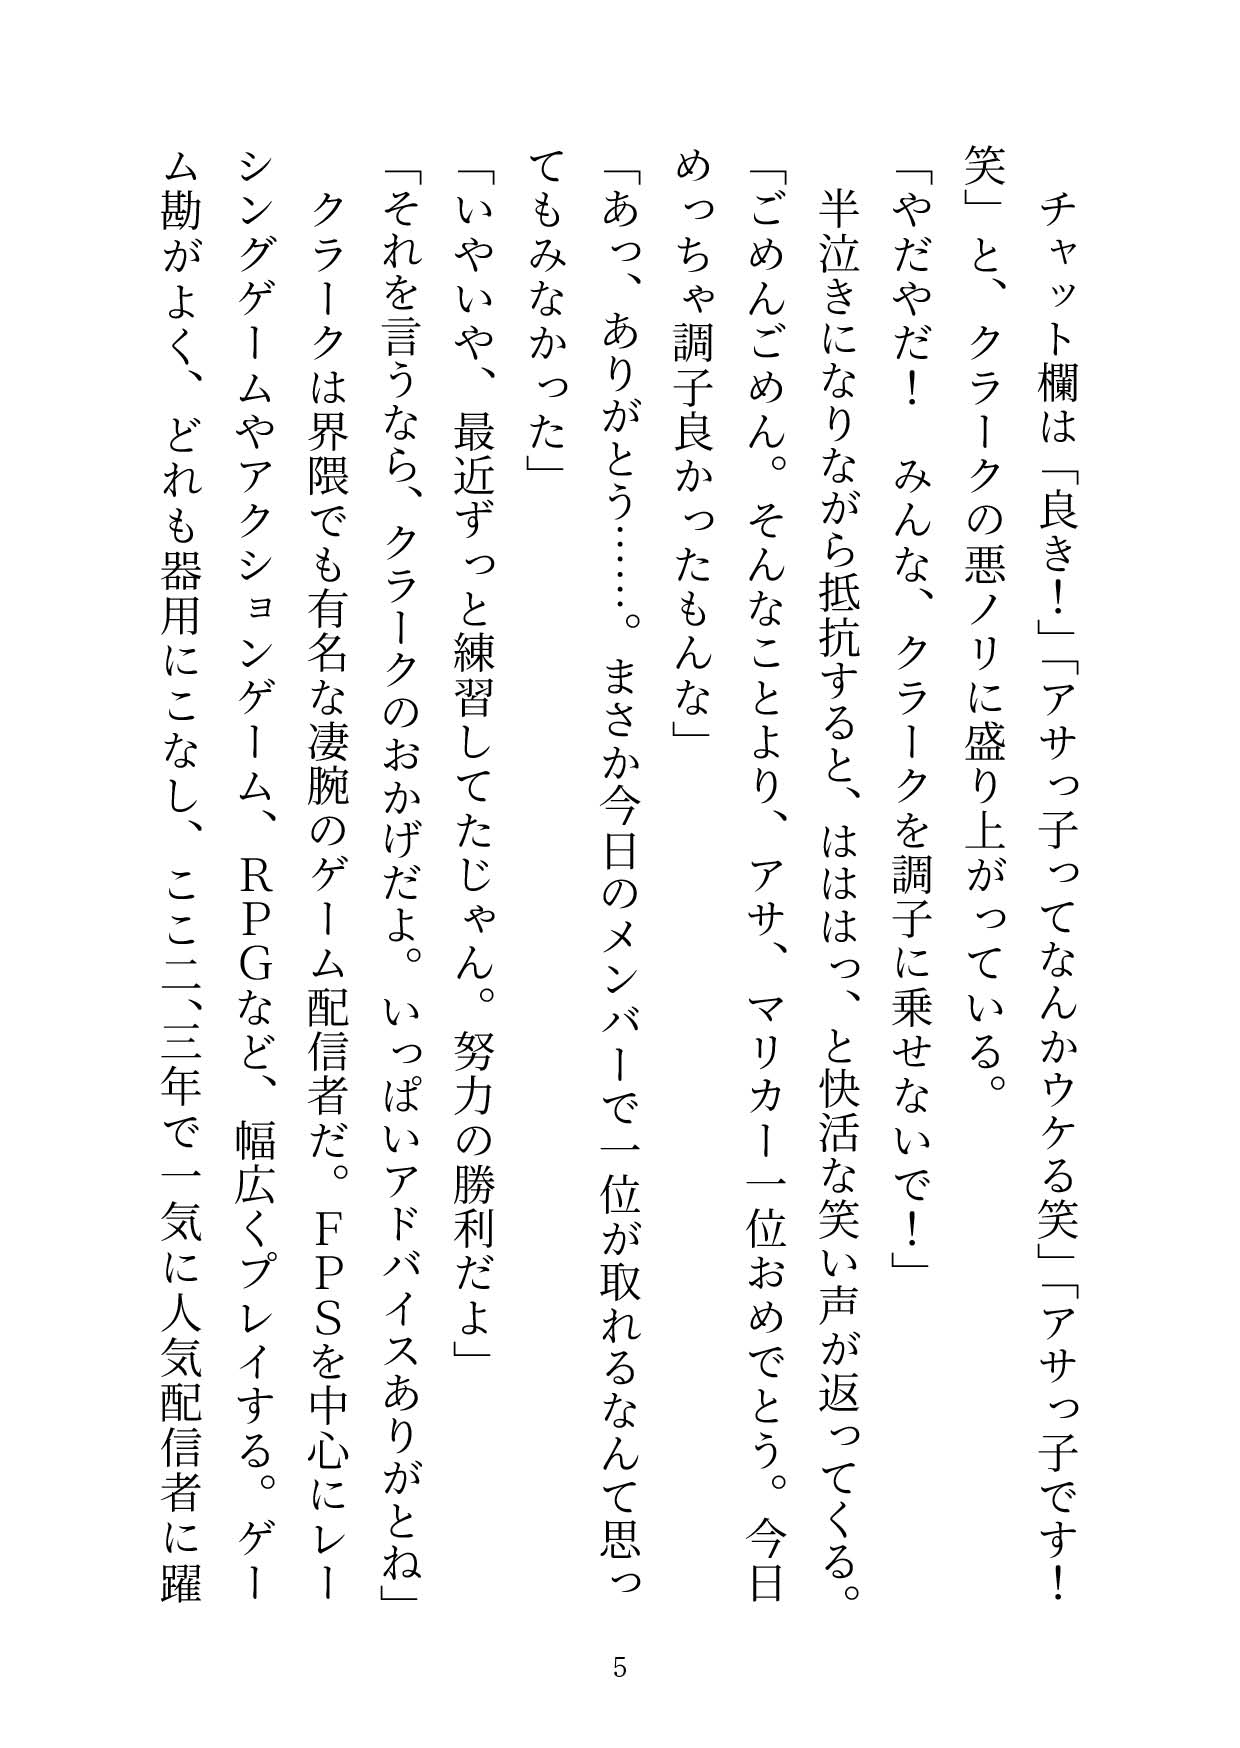 チャット欄は「良き！」「アサっ子ってなんかウケる笑」「アサっ子です！
笑」と、クラークの悪ノリに盛り上がっている。
「やだやだ！　みんな、クラークを調子に乗せないで！」
　半泣きになりながら抵抗すると、はははっ、と快活な笑い声が返ってくる。
「ごめんごめん。そんなことより、アサ、マリカー一位おめでとう。今日
めっちゃ調子良かったもんな」
「あっ、ありがとう……。まさか今日のメンバーで一位が取れるなんて思っ
てもみなかった」
「いやいや、最近ずっと練習してたじゃん。努力の勝利だよ」
「それを言うなら、クラークのおかげだよ。いっぱいアドバイスありがとね」
　クラークは界隈でも有名な凄腕のゲーム配信者だ。ＦＰＳを中心にレー
シングゲームやアクションゲーム、ＲＰＧなど、幅広くプレイする。ゲー
ム勘がよく、どれも器用にこなし、ここ二、三年で一気に人気配信者に躍
5